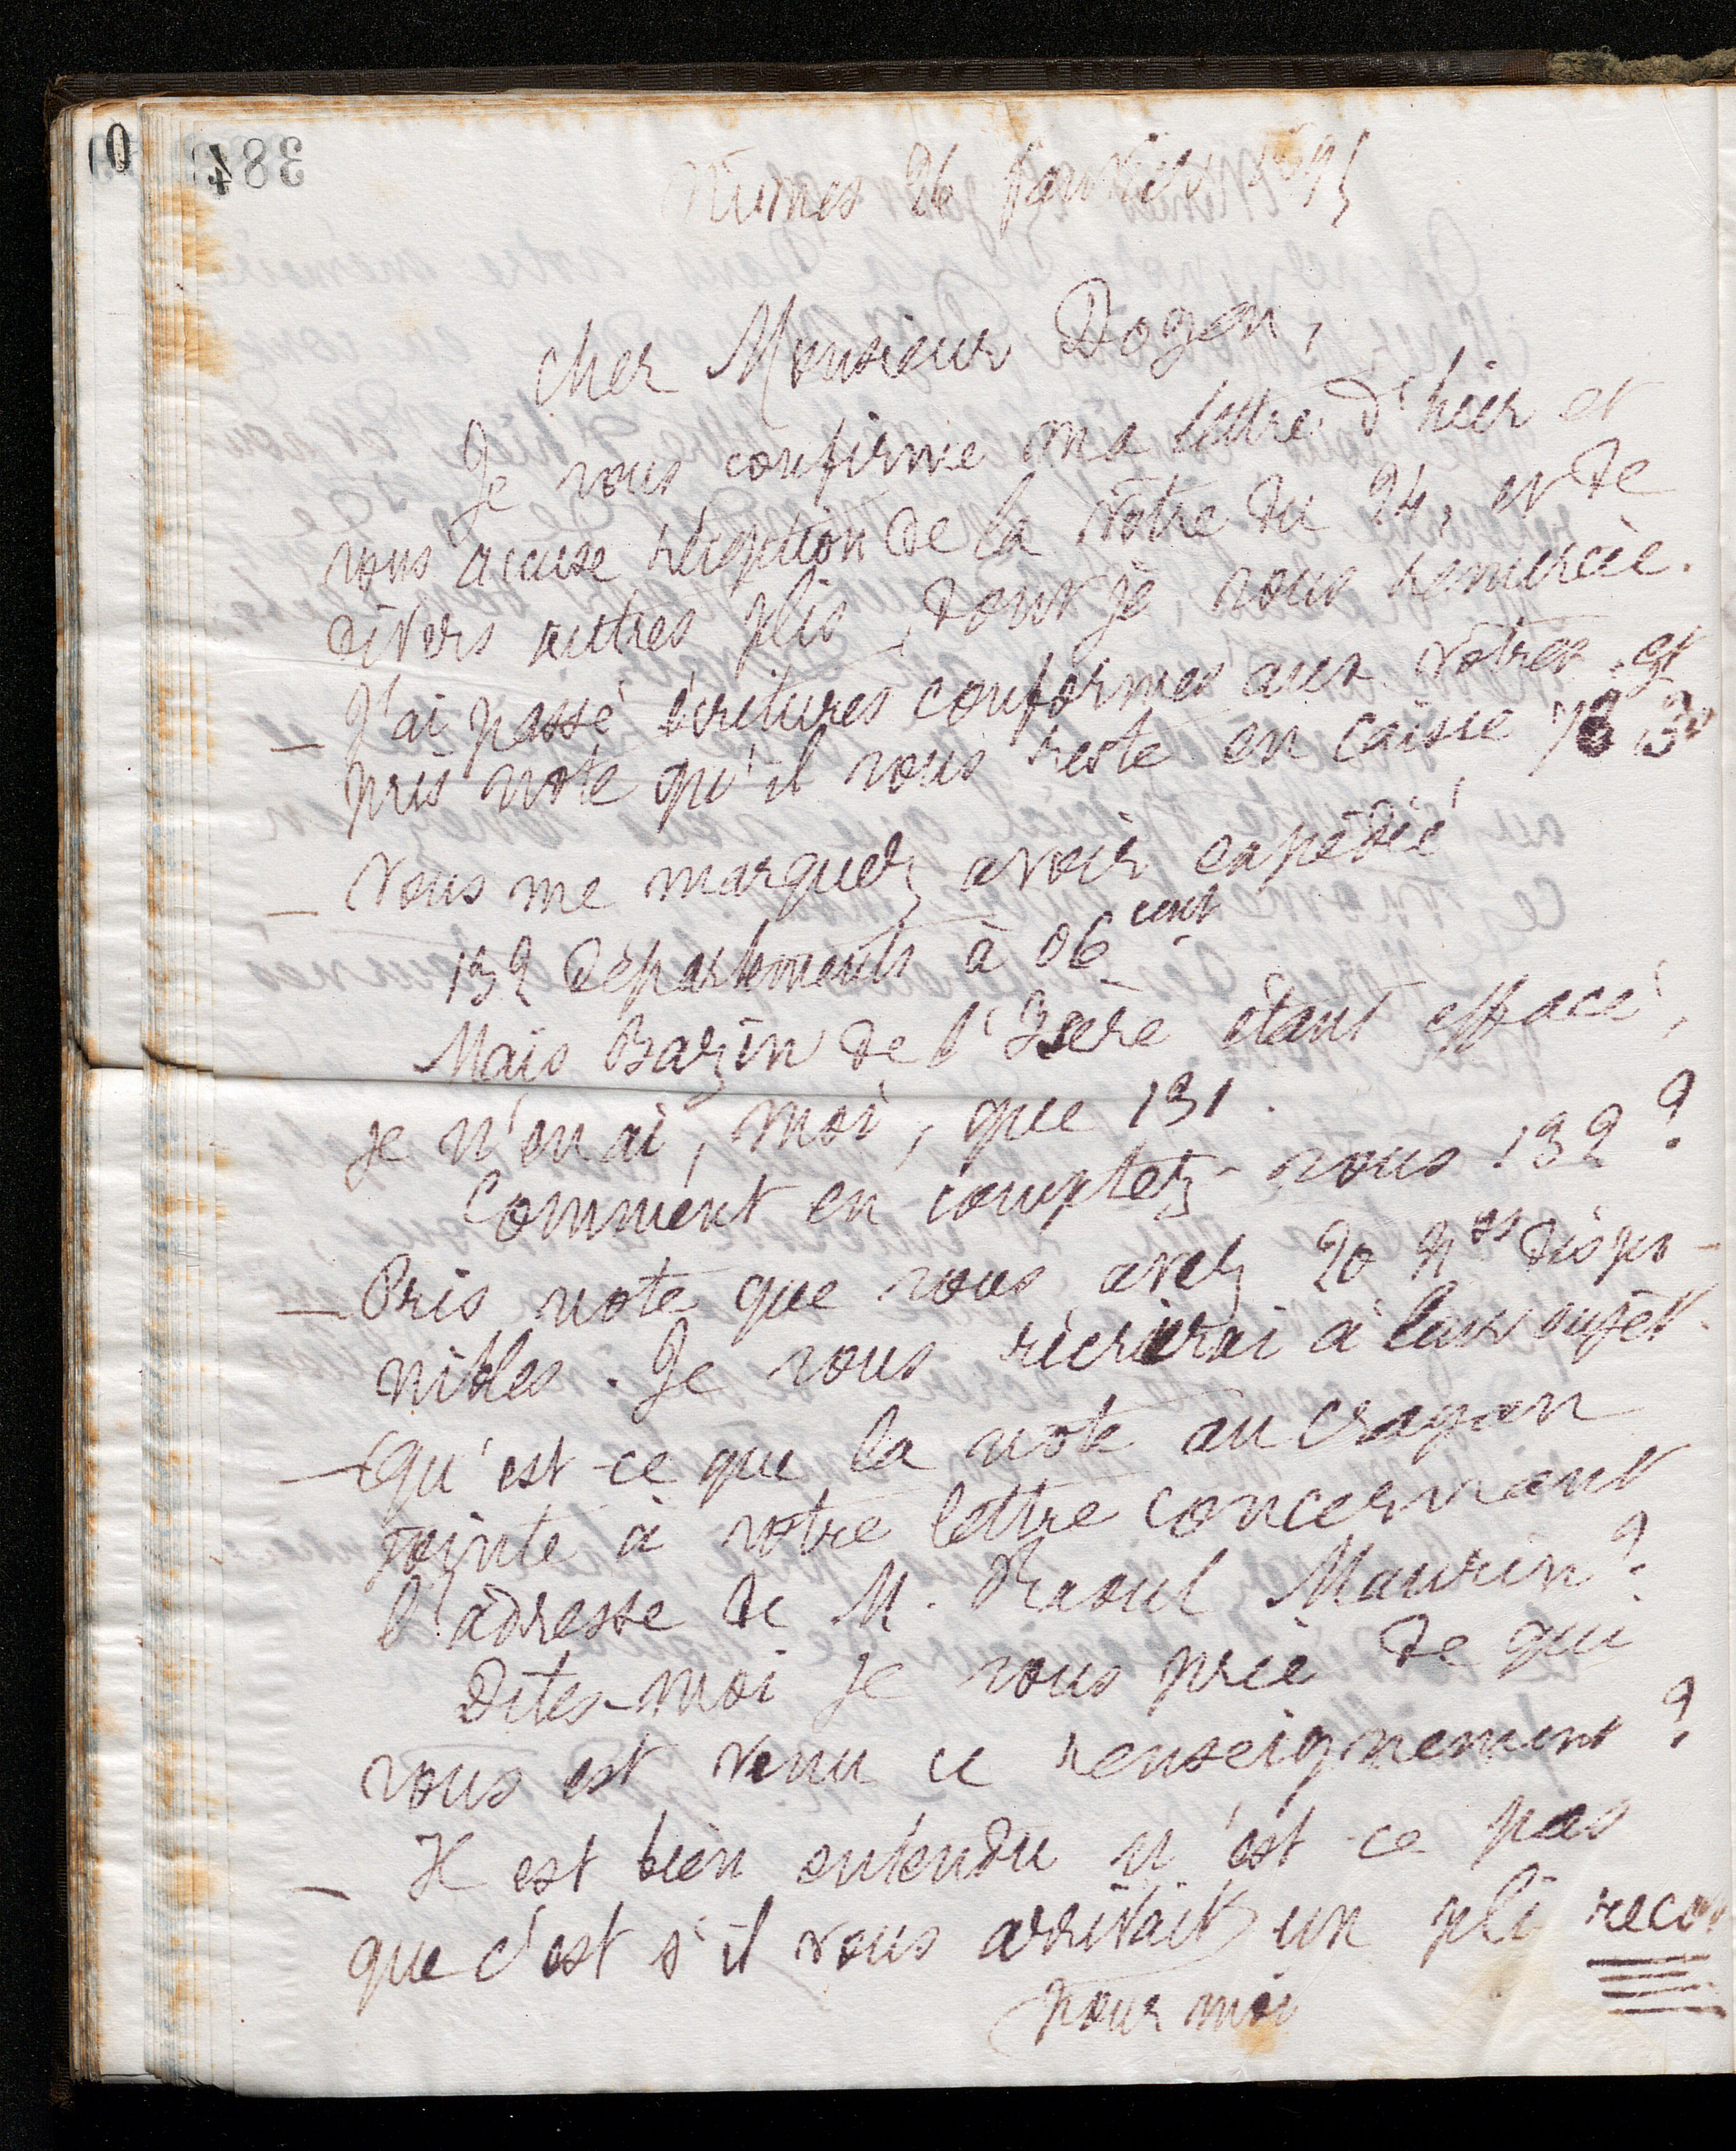 384
Nimes 26 Janvier 1895
Cher Monsieur Doyen,
Je vous confirme ma lettre d'hier et
vous accuse réception de la vôtre du 24, et de
divers autres plis, dont je vous remercie.
— J'ai passé écritures conformes aux vôtres et
pris note qu'il vous reste en caisse
— Vous me marquez avoir expédié
132 départements à 06 cent
Mais Bazin de l'Isère étant effacé,
je n'en ai, moi, que 131.
Comment en comptez-vous 132 ?
— Pris note que vous avez 20 Nos dispo-
nibles. Je vous récrirai à leur sujet.
— Qu'est-ce que la note au crayon
jointe à votre lettre concernant
l'adresse de M. Raoul Maurin ?
Dites-moi je vous prie de qui
vous est venu ce renseignement ?
— Il est bien entendu n'est-ce pas
que c'est s'il vous arrivait un pli
pour moi